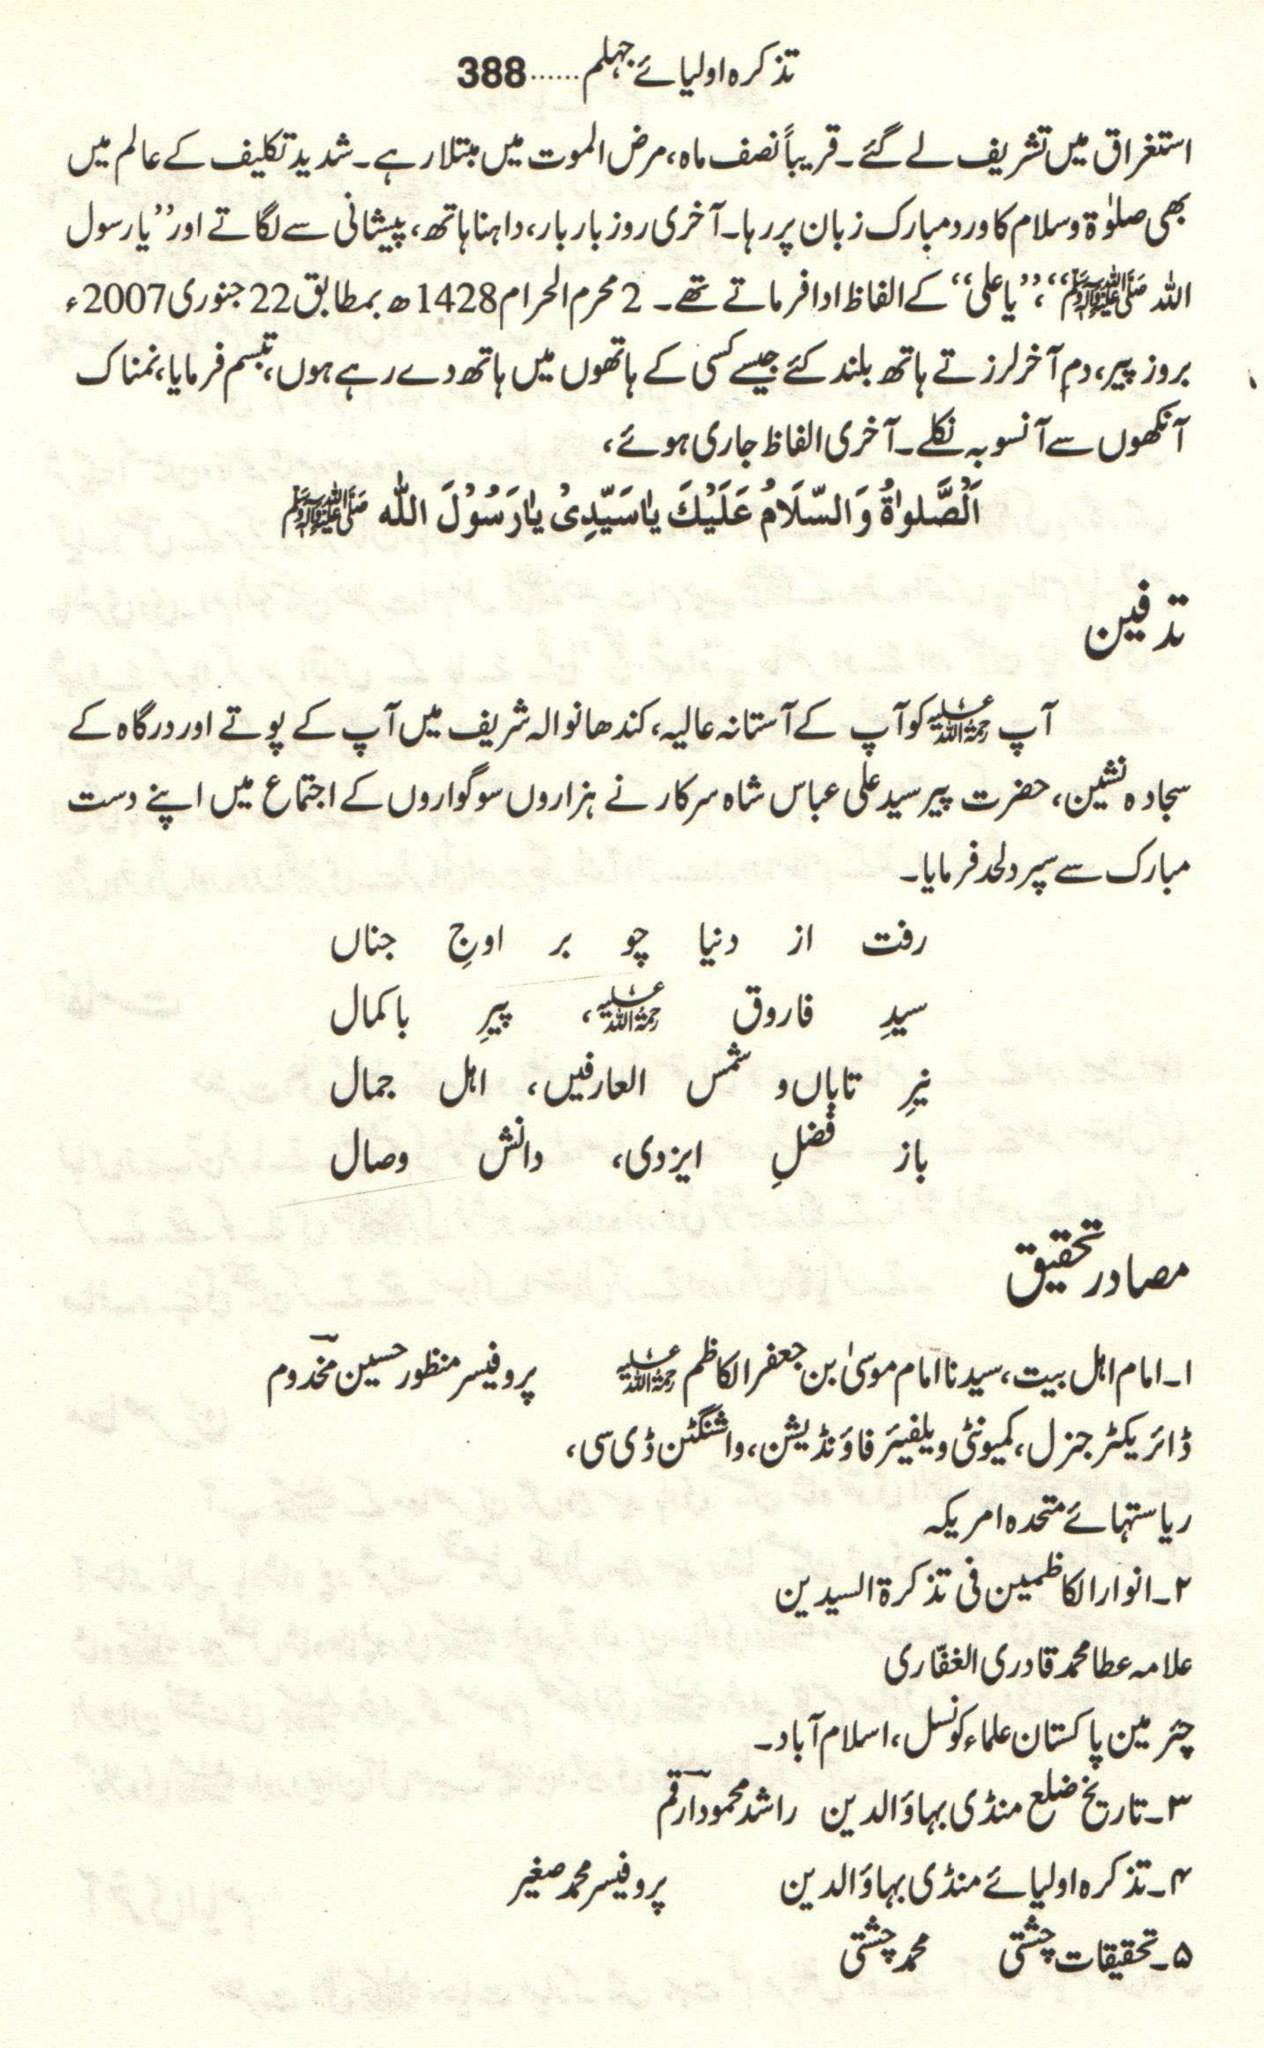 تذکرہ اولیائے جہلم......388
استغراق میں تشریف لے گئے۔ قریباً نصف ماہ، مرض الموت میں مبتلا رہے۔ شدید تکلیف کے عالم میں
بھی صلوٰۃ وسلام کا ورد مبارک زبان پر رہا۔ آخری روز بار بار، داہنا ہاتھ، پیشانی سے لگاتے اور ’’یا رسول
اللہ ﷺ‘‘، ’’یا علی‘‘ کے الفاظ ادا فرماتے تھے۔ 2 محرم الحرام 1428ھ بمطابق 22 جنوری 2007ء
بروز پیر، دمِ آخر لرزتے ہاتھ بلند کئے جیسے کسی کے ہاتھوں میں ہاتھ دے رہے ہوں، تبسم فرمایا، نمناک
آنکھوں سے آنسو بہ نکلے۔ آخری الفاظ جاری ہوئے،
اَلصَّلوٰۃُ وَالسَّلَامُ عَلَیْکَ یٰاسَیِّدِیْ یٰارَسُوْلَ اللّٰہ ﷺ
تدفین
آپ رحمۃ اللہ علیہ کو آپ کے آستانہ عالیہ، کندھانوالہ شریف میں آپ کے پوتے اور درگاہ کے
سجادہ نشین، حضرت پیر سید علی عباس شاہ سرکار نے ہزاروں سوگواروں کے اجتماع میں اپنے دست
مبارک سے سپرد لحد فرمایا۔
رفت از دنیا چو بر اوجِ جناں
سیدِ فاروق رحمۃ اللہ علیہ، پیرِ باکمال
نیرِ تاباں و شمس العارفیں، اہل جمال
باز فضلِ ایزدی، دانش وصال
مصادر تحقیق
۱۔ امام اہل بیت، سیدنا امام موسیٰ بن جعفر الکاظم رحمۃ اللہ علیہ پروفیسر منظور حسین مخدوم
ڈائریکٹر جنرل، کمیونٹی ویلفیئر فاؤنڈیشن، واشنگٹن ڈی سی،
ریاستہائے متحدہ امریکہ
۲۔ انوار الکاظمین فی تذکرۃ السیدین
علامہ عطا محمد قادری الغفّاری
چئرمین پاکستان علماء کونسل، اسلام آباد۔
۳۔ تاریخ ضلع منڈی بہاؤالدین راشد محمود ارقم
۴۔ تذکرہ اولیائے منڈی بہاؤالدین پروفیسر محمد صغیر
۵۔ تحقیقات چشتی محمد چشتی